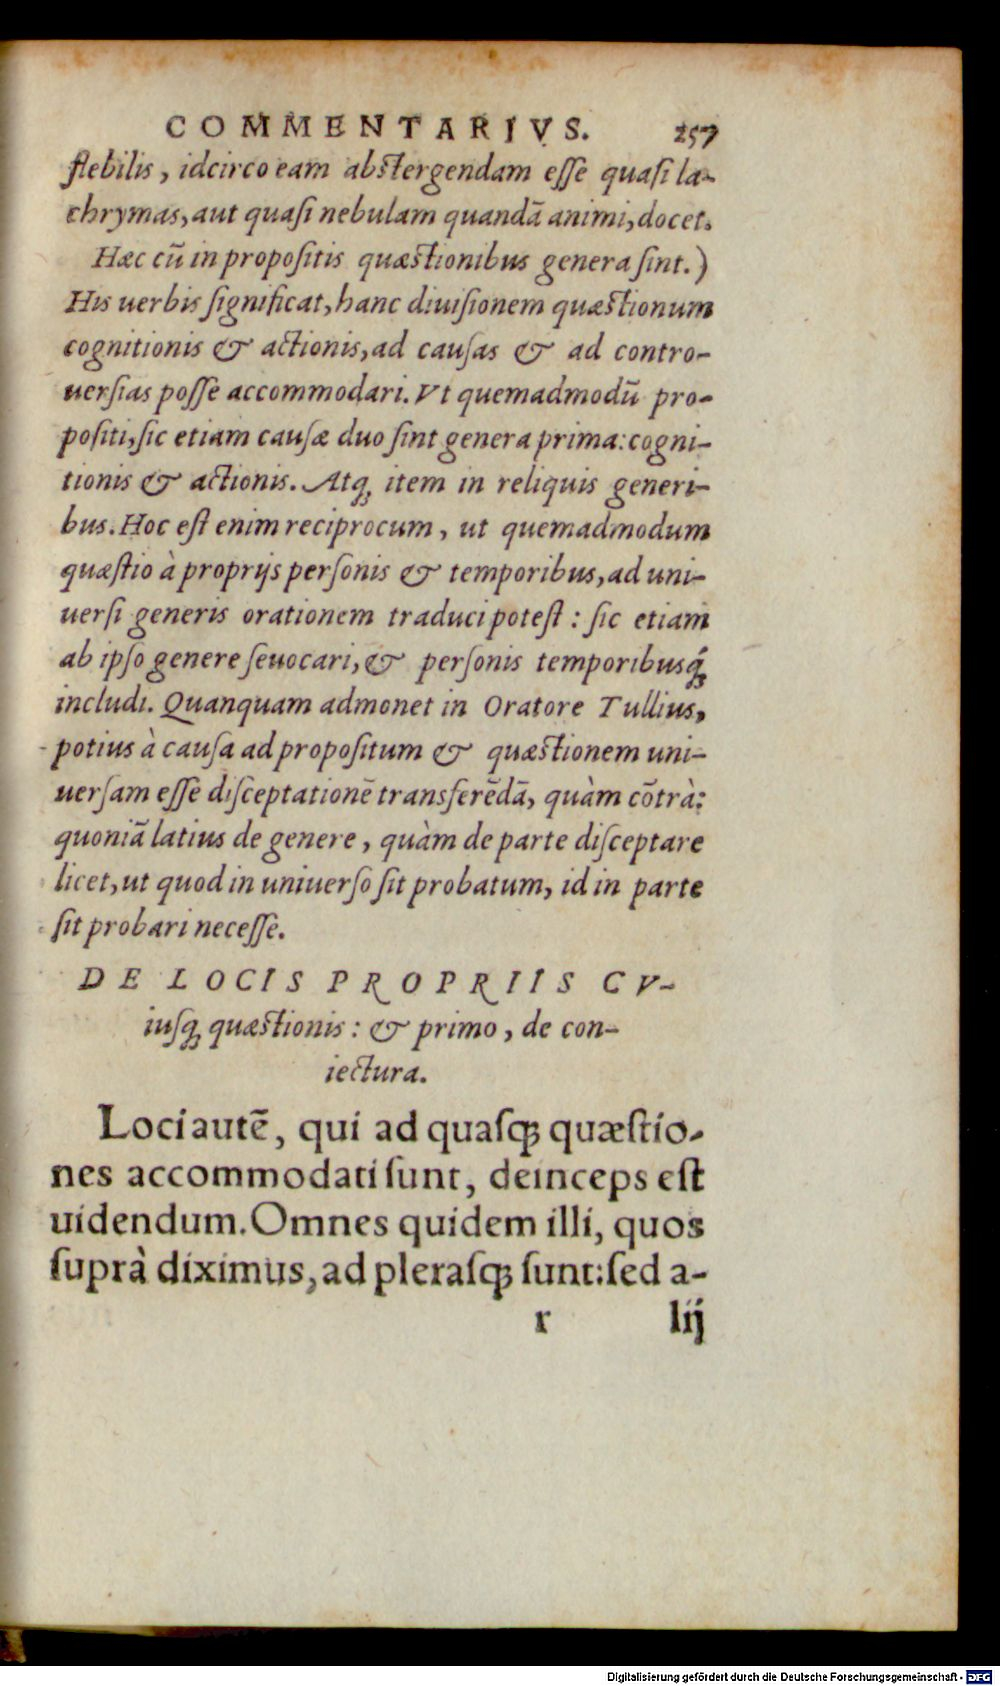 COMMENTARIVS. 257
flebilis, idcirco eam abstergendam esse quasi la-
chrymas, aut quasi nebulam quandā animi, docet.
Hæc cū in propositis quæstionibus genera sint.)
His uerbis significat, hanc diuisionem quæstionum
cognitionis & actionis, ad causas & ad contro-
uersias posse accommodari. Vt quemadmodū pro-
positi, sic etiam causæ duo sint genera prima: cogni-
tionis & actionis. Atq; item in reliquis generi-
bus. Hoc est enim reciprocum, ut quemadmodum
quæstio à proprijs personis & temporibus, ad uni-
uersi generis orationem traduci potest: sic etiam
ab ipso genere seuocari, & personis temporibusq́;
includi. Quanquam admonet in Oratore Tullius,
potius à causa ad propositum & quæstionem uni-
uersam esse disceptationē transferēdā, quàm cōtrà:
quoniā latius de genere, quàm de parte disceptare
licet, ut quod in uniuerso sit probatum, id in parte
sit probari necesse.
DE LOCIS PROPRIIS CV-
iusq; quæstionis: & primo, de con-
iectura.
Loci autē, qui ad quasq; quæstio-
nes accommodati sunt, deinceps est
uidendum. Omnes quidem illi, quos
suprà diximus, ad plerasq; sunt: sed a-
r lij
Digitalisierung gefördert durch die Deutsche Forschungsgemeinschaft - DFG